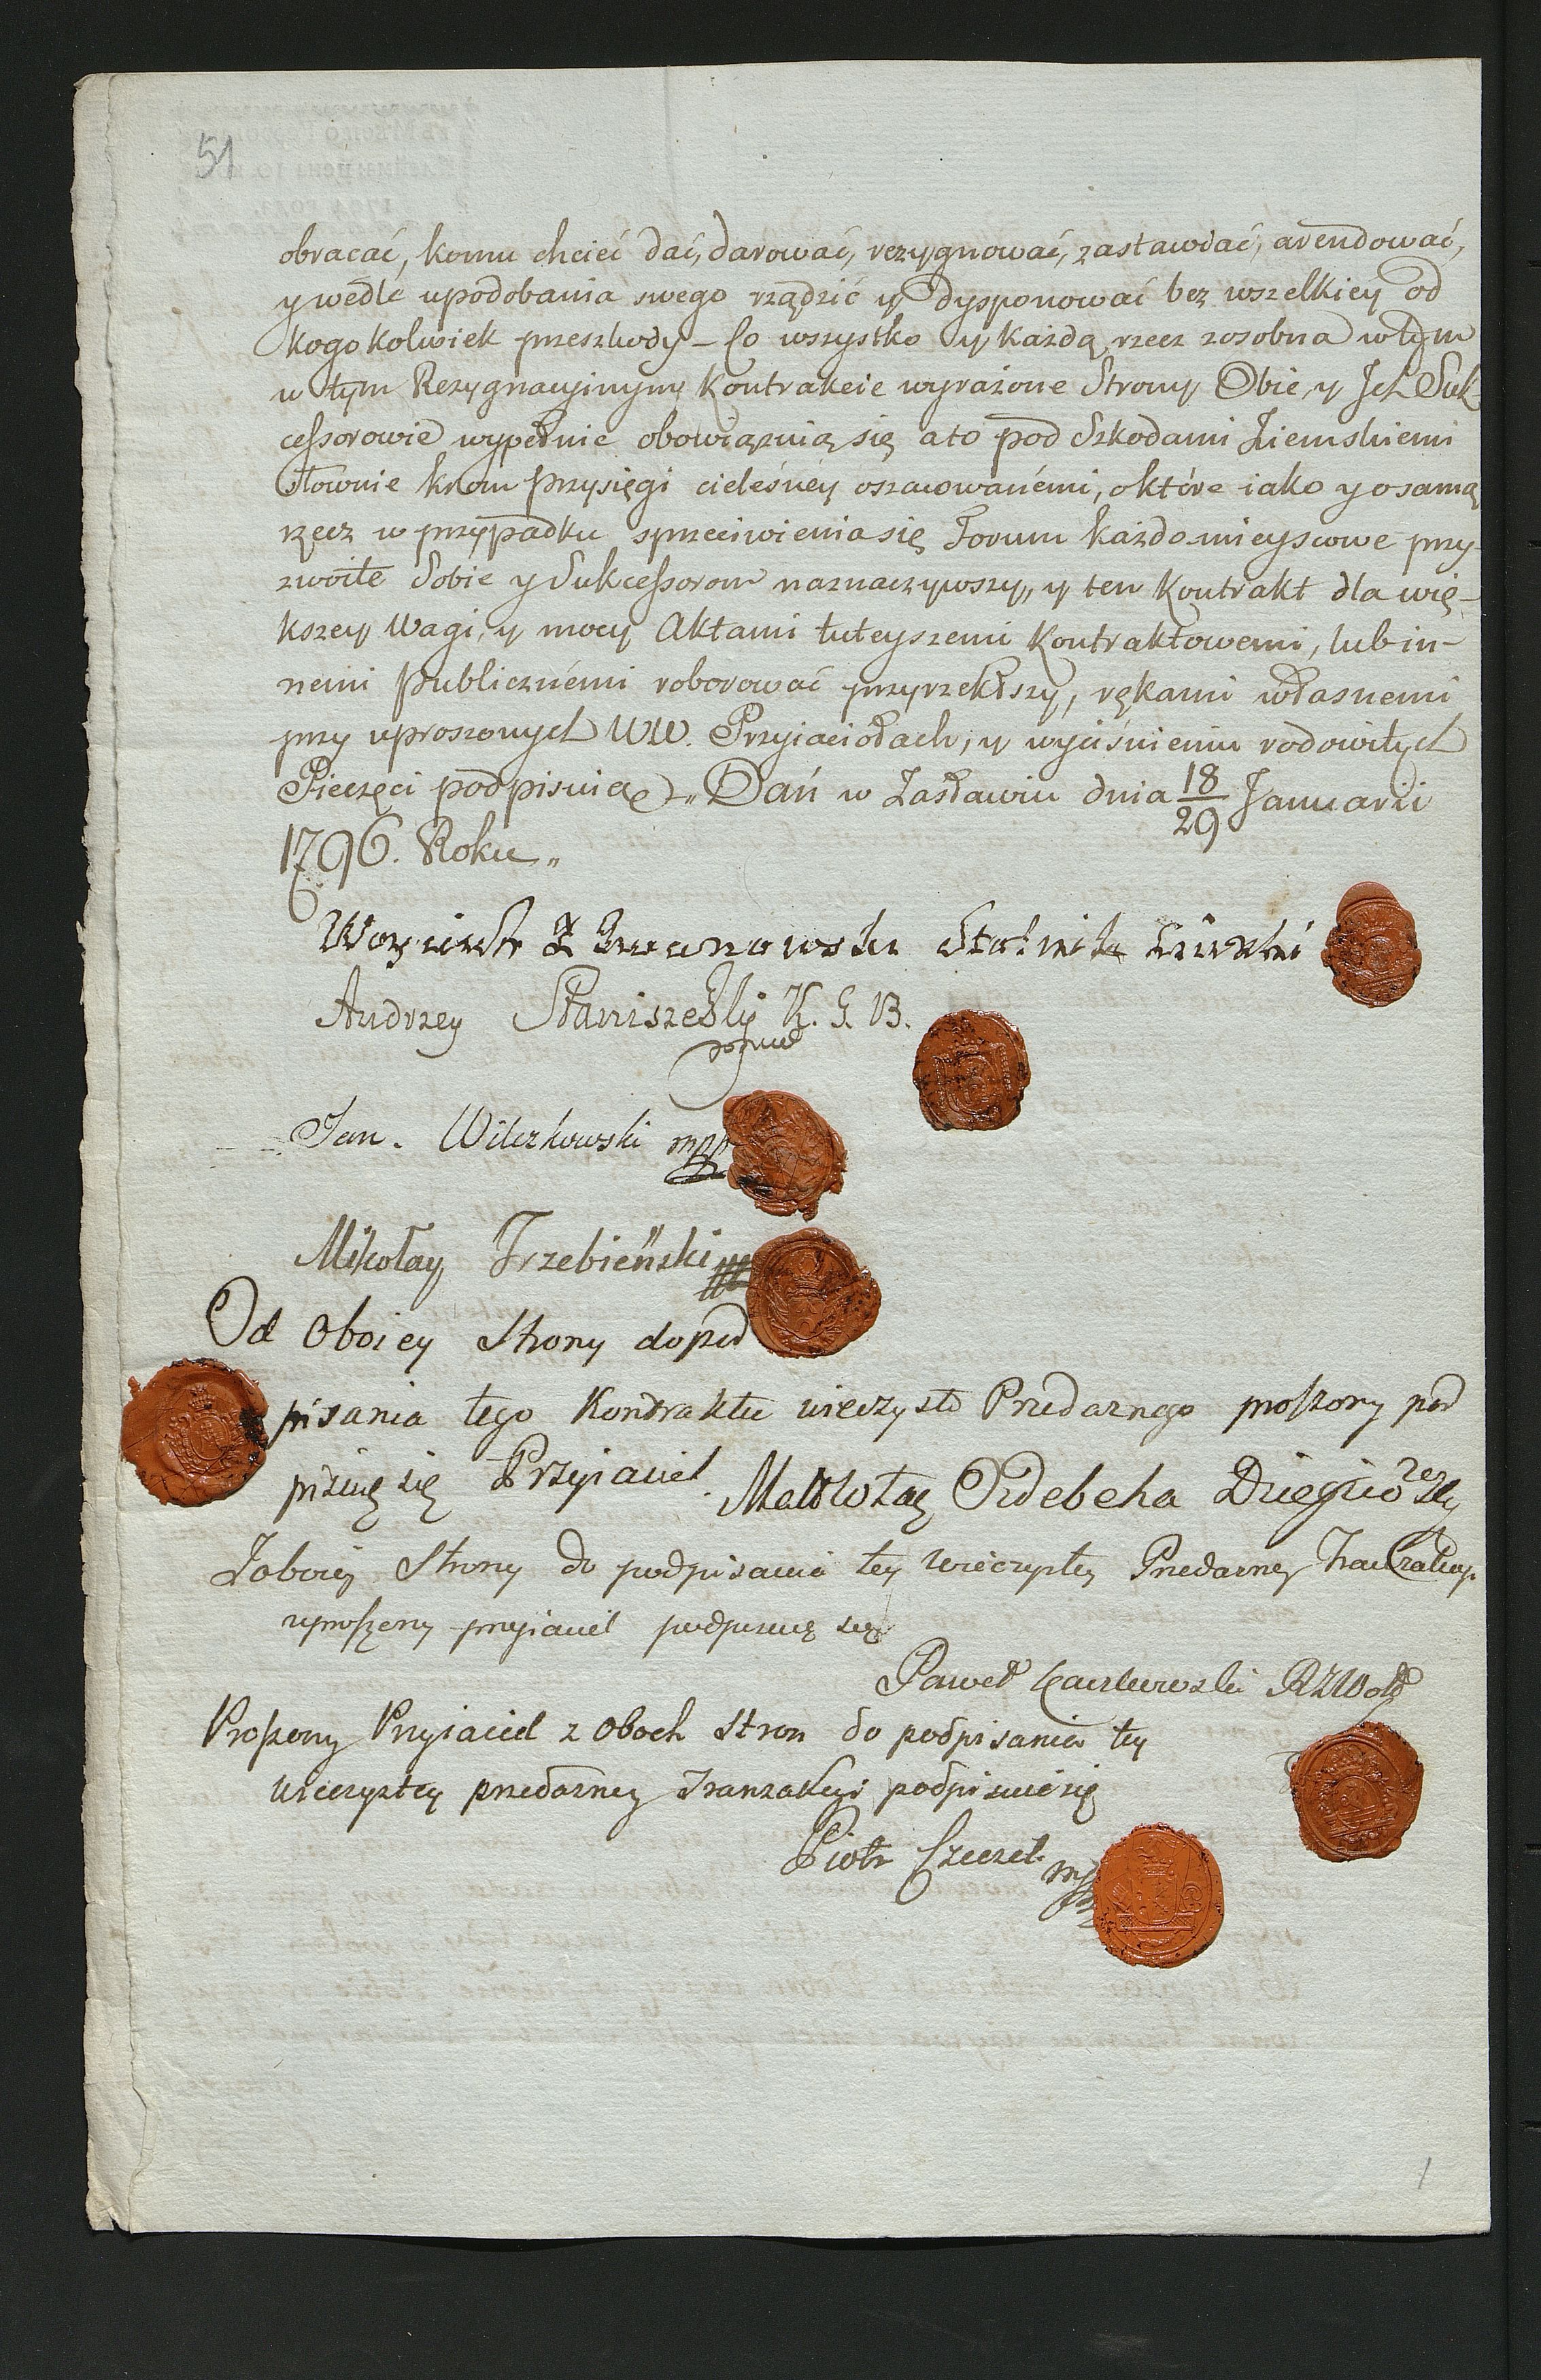 51
obracać, komu chcieć dać, darować, rezygnować, zastawiać, arendować,
y wedle upodobania swego rządzić y dysponować bez wszelkiey od
kogokolwiek przeszkody – Co wszystko y każdą rzecz zosobna w tym
w tym Rezygnacyinym Kontrakcie wyrażone Strony Obie, y Ich Suk-
cessorowie wypełnić obowiązuią się a to pod Szkodami Ziemskiemi
słownie krom Przysięgi cieleśnéy oszacowanémi, o które iako y o samą
rzecz w przypadku sprzeciwienia się Forum każdomieyscowe przy-
zwoite Sobie y Sukcessorom naznaczywszy, y ten Kontrakt dla wię-
kszey Wagi, y mocy Aktami tuteyszemi Kontraktowemi, lub in-
nemi Publicznémi roborować przyrzekłszy, rękami własnemi
przy uproszonych WW. Przyiaciołach, y wyciśnieniu rodowitych
Pieczęci podpisuią „ Dań w Zasławiu dnia 18/29 Januarii
1796. Roku „
Stolnik
Andrzey K. G. B.
Jan. Wilczkowski mpp
Mikołay Trzebieński
Od Oboiey Strony do pod
pisania tego Kontraktu wieczysto Przedaznego proszony pod
pisuię się Przyiaciel.
Zoboiey Strony do podpisania tey wieczystey Przedazney Tranzakcyi
uproszony przyiaciel podpisuię się
Paweł
Proszony Przyiaciel z Oboch Stron do podpisania tey
wieczystey przedazney Tranzakcyi podpisuie się
Piotr Czeczel mpp